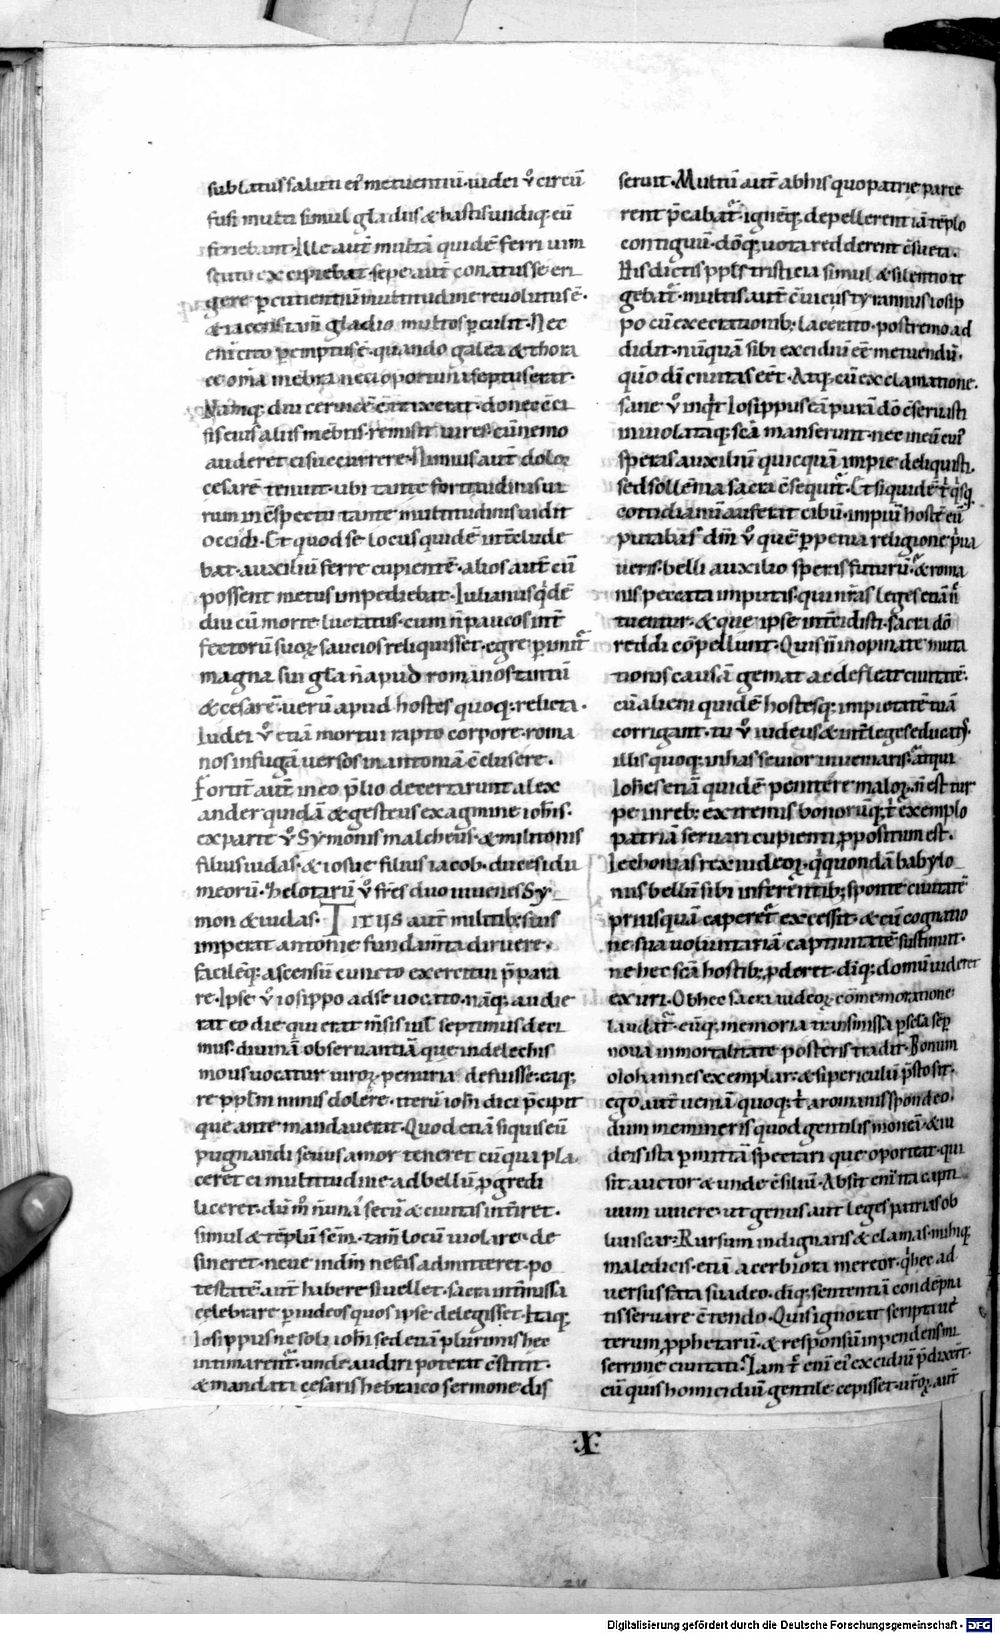 sublatus saluti ei᷒ metuentiū. iudei v̊ circū
fusi multi simul gladiis & hastis undiq; eū
feriebant. Ille aut̄ multā quidē ferri uim
scuto excipiebat. sepe aut̄ conatus se eri
gere p̱cutientiū multitudine reuolutus ē.
& iacens tam̄ gladio multos p̱culit. Nec
eni᷒ cito p̱emptus ē. quando galea & thora
ce om̄ia mēbra neci oportuna septus erat.
Namq; diu ceruicē cōtraxerat. donec cē
sis eius aliis mēbris. remisit uires. cū nemo
auderet ei succurrere. Nimius aut̄ dolor
cesarē tenuit. ubi tante fortitudinis ui
rum in c̄spectu tante multitudinis uidit
occidi. Et quod se locus quidē int̄clude
bat. auxiliū ferre cupientē. alios aut̄ cū
possent metus impediebat. Iulianus q̇dē
diu cū morte luctatus. cum n̄ paucos int̄
fectorū suoꝝ saucios reliquisset. egre p̱imit᷑
magna sui gl̄a n̄ apud romanos tantū
& cesarē. uerū apud hostes quoq; relicta.
Iudei v̊ etiā mortui rapto corpore. roma
nos in fugā uersos in antoniā c̄clusere.
Fortit̄ aut̄ in eo p̄lio decertarunt alex
ander quidā & gesteus ex agmine ioh̄is.
ex parte v̊ Symonis malcheus. & militonis
filius iudas. & iosue filius iacob. duces idu
meorū. Zelotarū v̊ fr̄es duo iuuenes Sy
mon & iudas. TITUS aut̄ militib; suis
imperat antonie fundam̄ta diruere.
facilēq; ascensū cuncto exercitui p̄para
re. Ipse v̊ iosippo ad se uocato. nāq; audie
rat eo die qui erat m̄sis iul̄ septimus deci
mus. diuinā obseruantiā que indelechis
mous uocatur uiroꝝ penuria defuisse. eaq;
re pp̄l̄m nimis dolere. iterū ioh̄i dici p̄cipit
que ante mandauerat. Quod etiā si quis eū
pugnandi seuus amor teneret cū qua pla
ceret ei multitudine ad bellū p̱gredi
liceret. dū m̊ n̄ unā secū & ciuitas int̄iret.
simul & tēplū sēm. tam̄ locū uiolare de
sineret. neue in dm̄ nefas admitteret. po
testatē aut̄ habere si uellet. sacra int̄missa
celebrare p̱ iudeos quos ipse delegisset. Itaq;
Iosippus ne soli ioh̄i sed etiā plurimis hec
intimarent᷑. unde audiri poterat c̄stitit.
& mandata cesaris hebraico sermone dis
seruit. Multū aut̄ ab his quo patrie parce
rent p̄cabat᷑. ignēq; depellerent iā tēplo
contiguū. dōq; uota redderent c̄sueta.
His dictis pp̄ls tristicia simul & silentio te
gebat᷑. multis aut̄ c̄uiciis tyrannus iosip
po cū execrationib; lacerato. postremo ad
didit. nūquā sibi excidiū eē metuendū.
quō di᷒ ciuitas eēt. Atq; cū exclamatione.
sane v̊ inq̇t Iosippus eā purā dō c̄seruasti
inuolataq; sc̄a manserunt. nec in eū cui᷒
speras auxiliū quicquā impie deliquisti.
sed sollēnia sacra c̄sequit᷑. Et siquidē t̊ q̇sq;
cottidianū auferat cibū. impiū hostē eū
putabas. dm̄ v̊ quē p̱petua religione p̊ua
ueris. belli auxilio speris futurū. & roma
nis peccata imputas. qui nr̄as leges etiā n̄
tuentur. & que ipse int̄cidisti. sacra dō
reddi cōpellunt. Quis n̄ inopinate muta
tionis causā gemat ac defleat ciuitatē.
cū alieni quidē hostesq; impietatē tuā
corrigant. tu v̊ iudeus & int̄ leges educat᷒.
illis quoq; in has seuior inueniaris. atqui
Ioh̄es etiā quidē penitere maloꝝ n̄ est tur
pe in reb; extremis. bonorūq; t̊ exemplo
patriā seruari cupienti p̱positum est.
Iechonias rex iudeoꝝ. q̇ quondā babylo
niis bellū sibi inferentib; sponte ciuitatē
priusquā caperet᷑ excessit. & cū cognatio
ne sua uoluntariā captiuitatē sustinuit.
ne hec sc̄a hostib; p̱deret. dīq; domū uideret
exuri. Ob hec sacra iudeoꝝ cōmemoratione
laudat᷑. eūq; memoria transmissa p̱ sc̄la sēp̱
noua inmortalitate posteris tradit. Bonum
o Iohannes exemplar. & si periculū p̄sto sit.
ego aut̄ ueniā quoq; t̊ a romanis spondeo.
dum memineris quod gentilis moneā & iu
deis ista p̱mittā spectari que oporteat. qui
sit auctor & unde c̄siliū. Absit eni᷒ ita capti
uum uiuere. ut genus aut leges patrias ob
liuiscar. Rursum indignaris & clamas. mihiq;
maledicis. etiā acerbiora mereor. q̇ hec ad
uersus fata suadeo. dīq; sententiā condēpna
tis seruare c̄tendo. Quis ignorat scripta ue
terum p̱phetarū. & responsū inpendens mi
serrime ciuitati. Iam t̊ eni᷒ ei᷒ excidiū p̄dixerūt.
cū quis homicidiū gentile cepisset. ur̄oꝝ aut̄
·X·
Digitalisierung gefördert durch die Deutsche Forschungsgemeinschaft - DFG